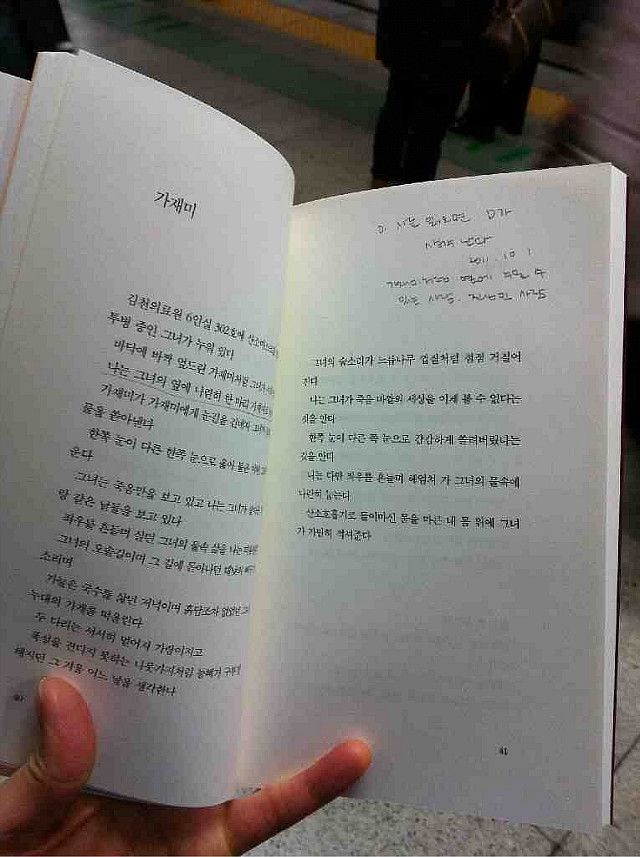 가재미
김천의료원 6인실 302호에 산소마스크를
투병 중인 그녀가 누워 있다
바닥에 바짝 엎드린 가재미처럼 그녀가
나는 그녀의 옆에 나란히 한 마리 가재미로
가재미가 가재미에게 눈길을 건네자 그녀가
물을 쏟아낸다
한쪽 눈이 다른 한쪽 눈으로 옮아 붙은 야윈
운다
그녀는 죽음만을 보고 있고 나는 그녀가 살아온
랑 같은 날들을 보고 있다
좌우를 흔들며 살던 그녀의 물속 삶을 나는 떠올린다
그녀의 오솔길이며 그 길에 돋아나던 대낮의
소리며
가늘은 국수를 삶던 저녁이며 흙담조차 없었던
누대의 가계를 떠올린다
두 다리는 서서히 멀어져 가랑이지고
폭설을 견디지 못하는 나뭇가지처럼 등뼈가 구부정
해지던 그 겨울 어느 날을 생각한다
2011. 10. 1
있는 사람.
그녀의 숨소리가 느릅나무 껍질처럼 점점 거칠어
진다
나는 그녀가 죽음 바깥의 세상을 이제 볼 수 없다는
것을 안다
한쪽 눈이 다른 쪽 눈으로 캄캄하게 쏠려버렸다는
것을 안다
나는 다만 좌우를 흔들며 헤엄쳐 가 그녀의 물속에
나란히 눕는다
산소호흡기로 들이마신 물을 마른 내 몸 위에 그녀
가 가만히 적셔준다
41